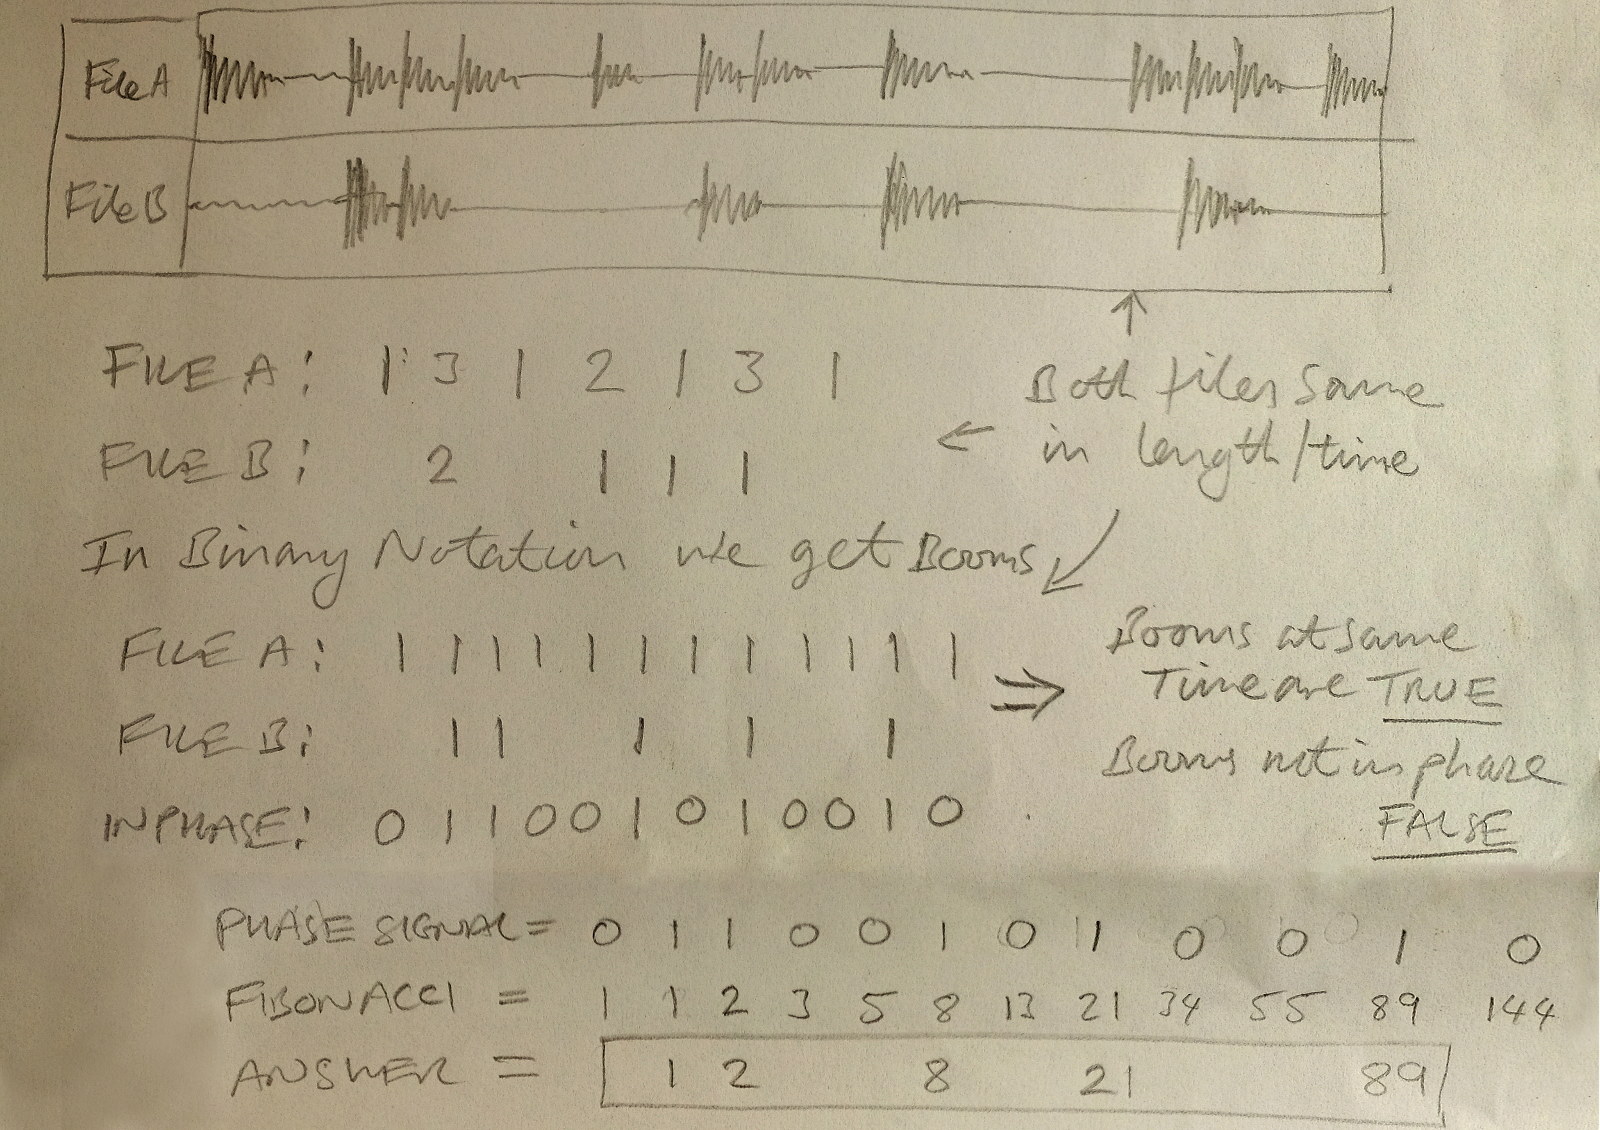 File A
File B
FILE A: 1 3 1 2 1 3 1
FILE B: 2 1 1 1
Both files same
in length/time
In Binary Notation we get Booms
FILE A: 1 1 1 1 1 1 1 1 1 1 1 1
FILE B: 1 1 1 1 1
INPHASE: 0 1 1 0 0 1 0 1 0 0 1 0
Booms at same
Time are TRUE
Booms not in phase
FALSE
PHASE SIGNAL = 0 1 1 0 0 1 0 1 0 0 1 0
FIBONACCI = 1 1 2 3 5 8 13 21 34 55 89 144
ANSWER = 1 2 8 21 89